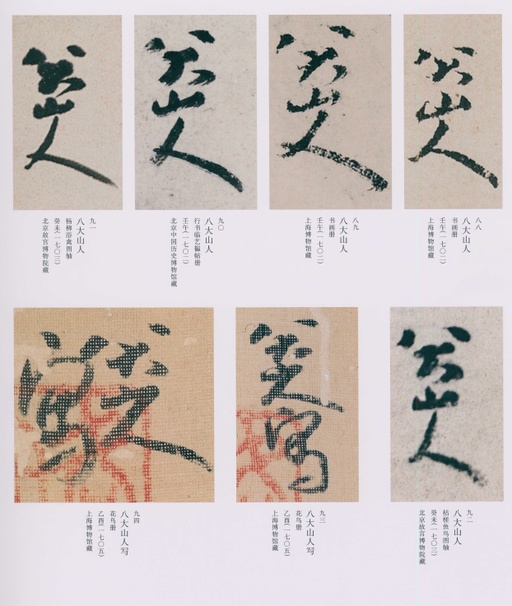 八大山人
八八
八大山人
书画册
壬午(一七〇二)
上海博物馆藏
八大山人
八九
八大山人
书画册
壬午(一七〇二)
上海博物馆藏
八大山人
九〇
八大山人
行书临艺韫帖册
壬午(一七〇二)
北京中国历史博物馆藏
八大山人
九一
八大山人
杨柳浴禽图轴
癸未(一七〇三)
北京故宫博物院藏
八大山人
九二
八大山人
枯槎鱼鸟图轴
癸未(一七〇三)
北京故宫博物院藏
八大山人写
九三
八大山人写
花鸟册
乙酉(一七〇五)
上海博物馆藏
八大山人写
九四
八大山人写
花鸟册
乙酉(一七〇五)
上海博物馆藏